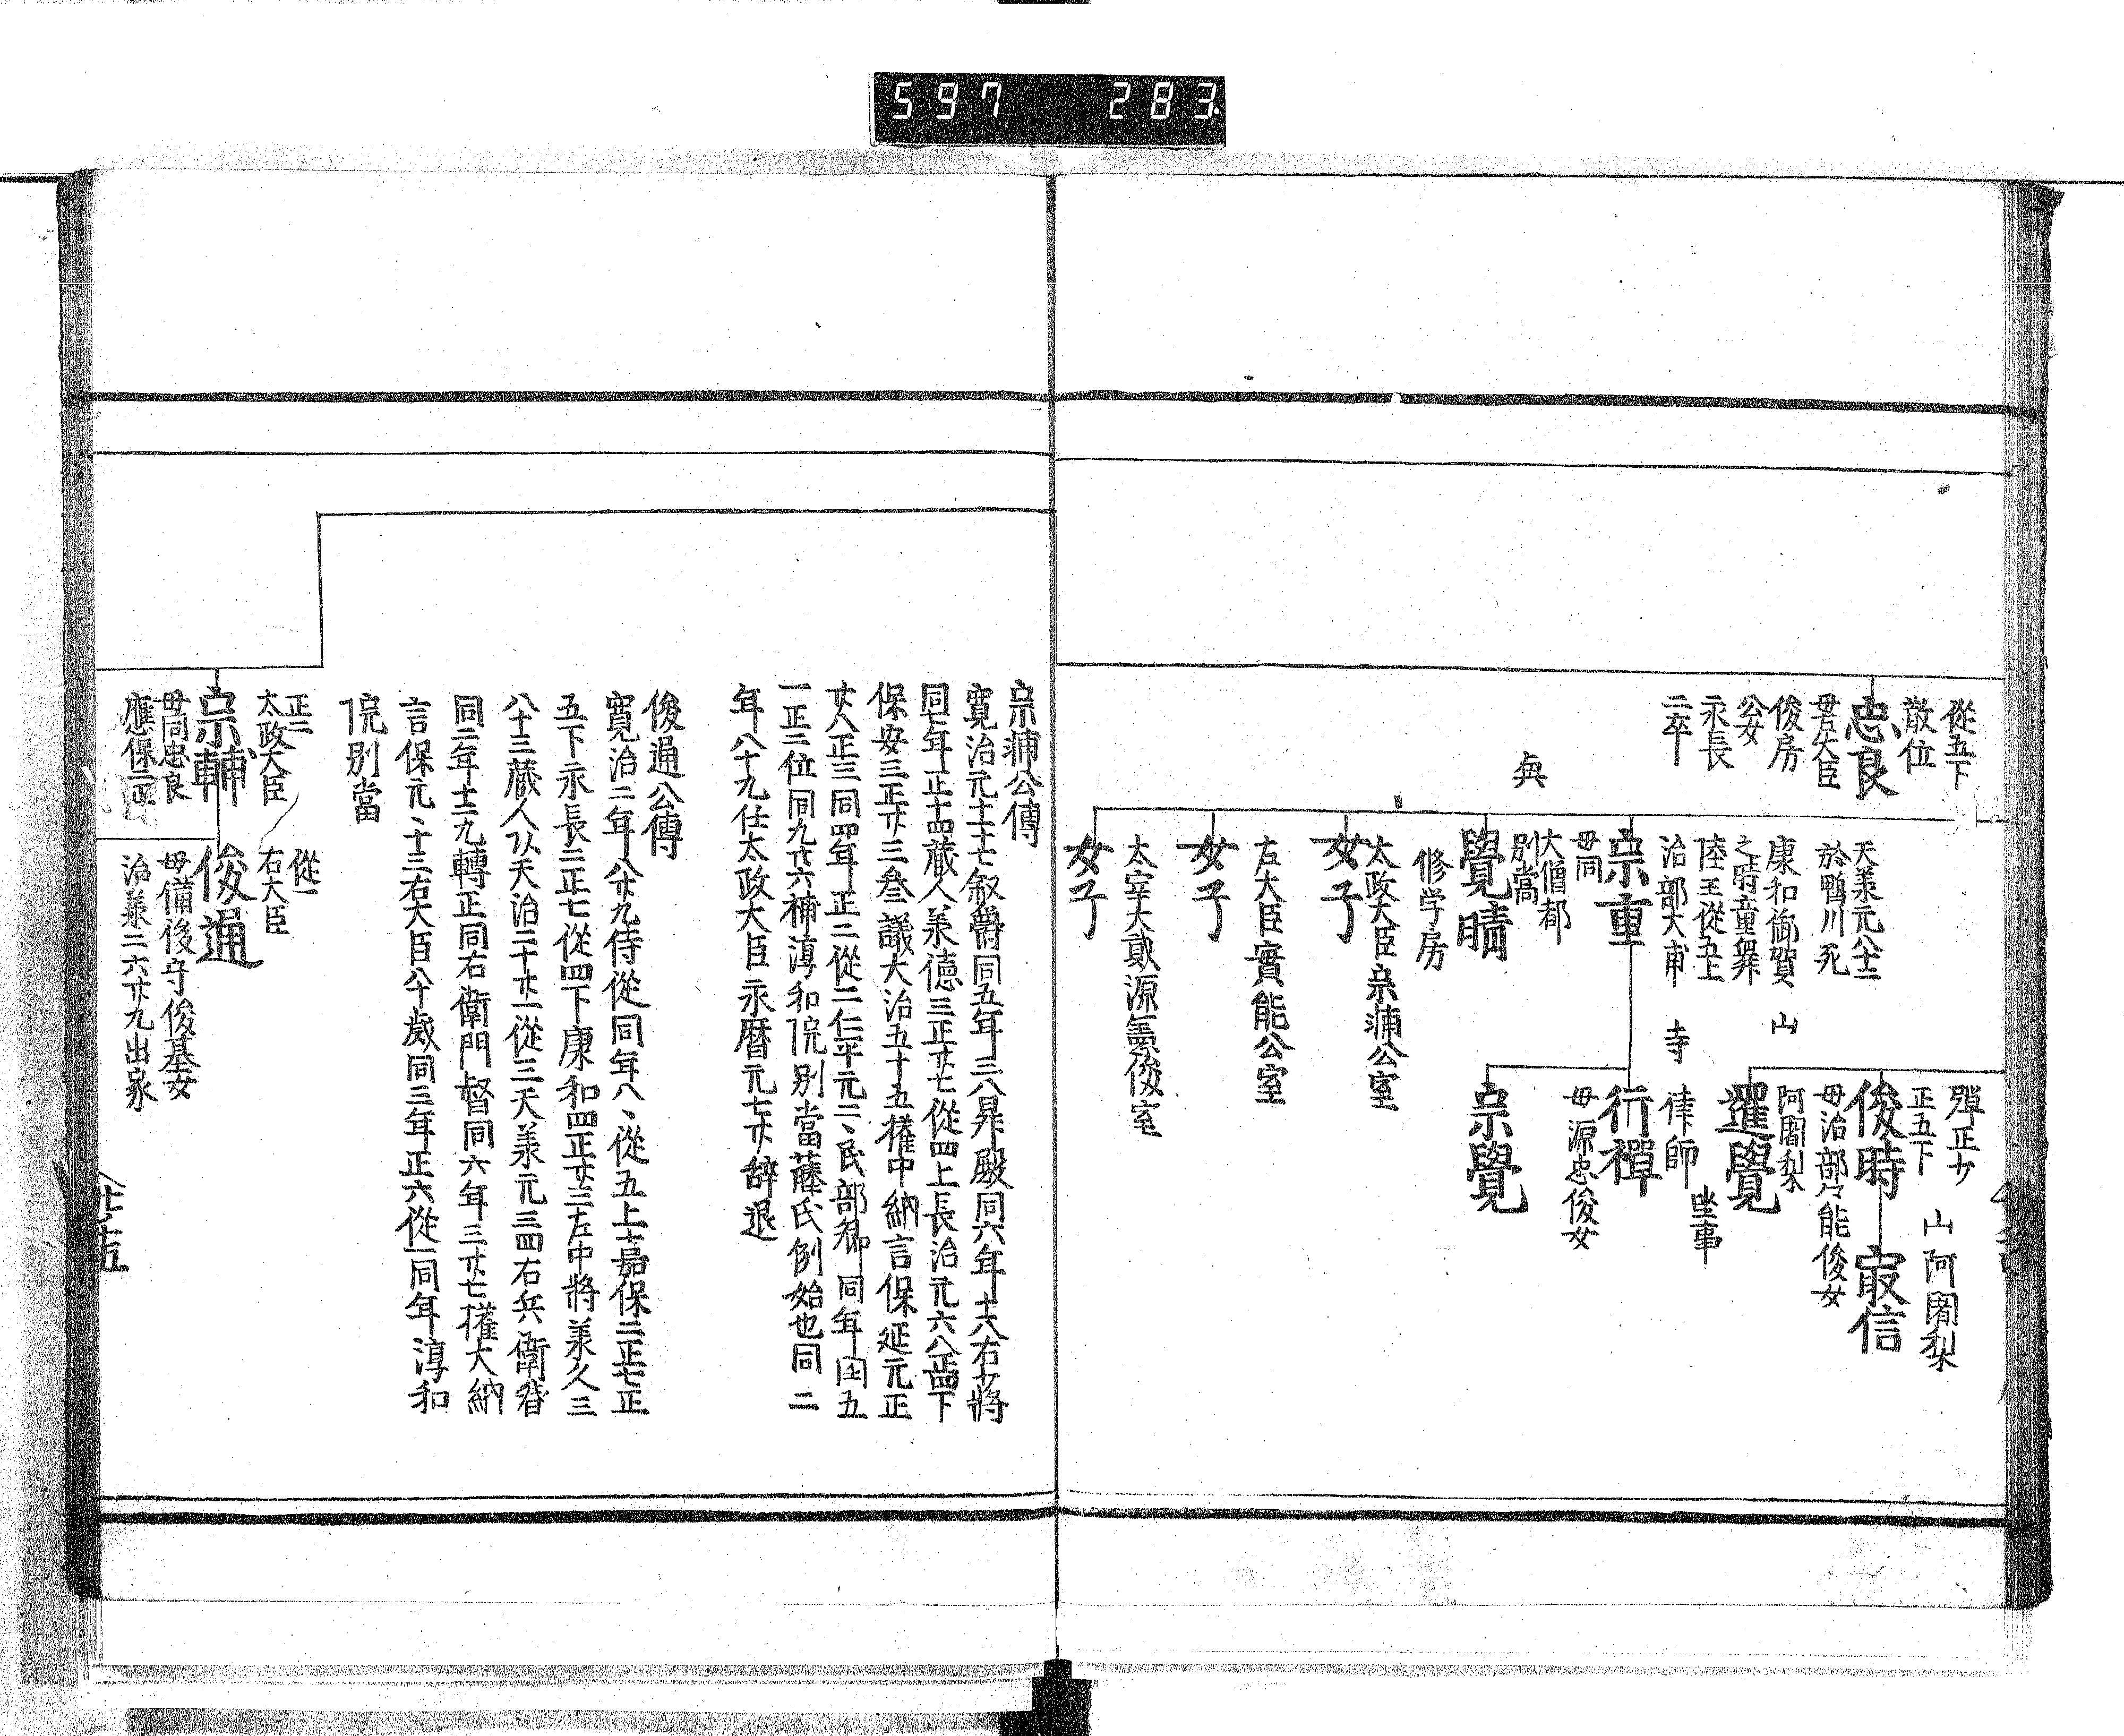 597 283
從五下
散位
忠良
母左大臣
俊房
公女
永長
二卒
天兼元八十二
於鴨川死
康和御賀 山
之時童舞
陸王從五上
治部大甫 寺
宗重
母同
大僧都
別當
興
覺晴
修学房
太政大臣宗輔公室
女子
左大臣實能公室
女子
太宰大貳源憲俊室
女子
彈正少
正五下 山阿闍梨
俊時 㝡信
母治部々能俊女
阿闍梨
暹覺
坐事
律師
行禪
母源忠俊女
宗覺
宗輔公傳
寛治元十二十七叙爵同五年三八昇殿同六年十二八右少將
同七年正十四藏人兼德三正廿七從四上長治元六八正四下
保安三正廿三叄議大治五十五權中納言保延元正
廿八正三同四年正二從二仁平元二、民部卿同年月五
一正二位同九廿六補淳和院別當藤氏例始也同二
年八十九任太政大臣永暦元七廿辞退
俊通公傳
寛治二年八廿九侍從同年八、從五上嘉保二正七正
五下永長二正七從四下康和四正廿三左中將兼久三
八十三藏人以天治二十廿一從三天兼元三四右兵衛督
同二年十二九轉正同右衛門督同六年三廿七權大納
言保元、十三右大臣八十歳同三年正六從一同年淳和
院別當
正二
太政大臣
宗輔
母同忠良
應保二
從一
右大臣
俊通
母備後守俊基女
治兼二六廿九出家